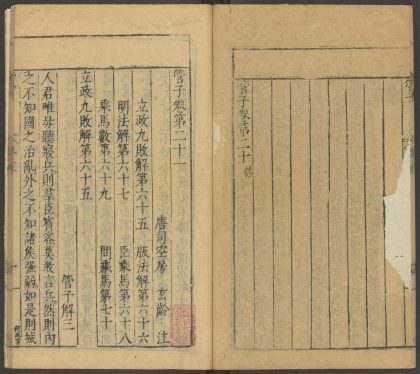 管子卷第二十終
管子卷第二十一
唐司空房 玄齡 注
立政九敗解第六十五 版法解第六十六
明法解第六十七 臣乘馬第六十八
乘馬數第六十九 問乘馬第七十
立政九敗解第六十五
管子解三
人君唯毋聽寢兵則羣臣賓客莫敢言兵然則內
之不知國之治亂外之不知諸矦強弱如是則城